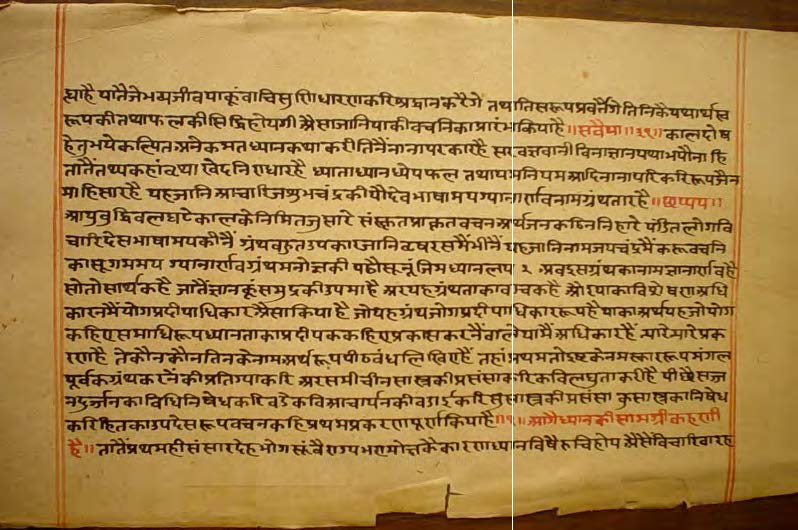 ग्राहै यातैजेभव्यजीवयाकूंवाचिसुणिधारणाकरिश्रद्धानकरैगे तथातिसरूपप्रवर्त्तैगेतिनिकैयथार्थस्व
रूपकीतथाफलकीसिद्धिहोयगी अैसाजानियाकीवचनिकाप्रारंभकियाहै ॥सवैया॥२९॥ कालदोष
हेतुभयेकल्पितअनेकमतध्यानकथाकरीतिनैंनानापरकारहै सरवज्ञवानीविनाज्ञानपथाभपौनाहि
तातैंतथ्यकहांवृथाखेदनिराधारहै ध्याताध्यानध्येयफल तथायमनियमआदिनानापरिकरिरूपजैन
माहिसारहै यहजानिआचारिजशुभचंद्रकीयौदेवभाषामयग्यानार्णवनामग्रंथतारहै ॥छप्पय॥
आयुबुद्धिबलघटेकालकेनिमितजुसारे संस्कृतप्राकृतवचनअर्थजनकठिननिहारे पंडितलोगवि
चारिदेसभाषामयकीनैं ग्रंथबहुतउपकारजानि यहजानिनामजयचंद्रमैंकरूवचनि
कासुगममय ग्यानार्णवग्रंथमनोज्ञकी पढौसुनूं अबइसग्रंथकानामज्ञानार्णवहै
सोतोसार्थकहै जातैंज्ञानकूंसमुद्रकीउपमाहै अरयहग्रंथताकावाचकहै औरयाकाविशेषणअधि
कारनमैंयोगप्रदीपाधिकारअैसाकियाहै जोयहग्रंथजोगप्रदीपाधिकाररूपहैयाकाअर्थयहजोयोग
कहिएसमाधिरूपध्यानताकाप्रदीपककहिएप्रकासकरनैंवालेयामैंअधिकारहैं न्यारेन्यारेप्रक
रणहै तेकौनकौनतिनकेनामअर्थरूपपीठबंधलिखिएहै तहांप्रथमतोइष्टकेनमस्काररूपमंगल
पूर्वकग्रंथकरनेंकीप्रतिग्याकरि अरसमीचीनसास्त्रकीप्रसंसाकरिकविलघुताकरीहै पीछैसज्ज
नदुर्ज्जनकाविधिनिषेधकरिवडेकविआचार्यनकीवडाईकरिसुसास्त्रकीप्रसंसा कुसास्त्रकानिषेध
करिहितकाउपदेसरूपवचनकहिप्रथमप्रकरणपूर्णकियाहै ॥१॥ आगैध्यानकीसामग्रीकहणी
है॥ तातैंप्रथमहीसंसारदेहभोगसूंवैराग्यभएमोक्षकैकारणध्यानविषैरुचिहोय अैसैंविचारिबारह